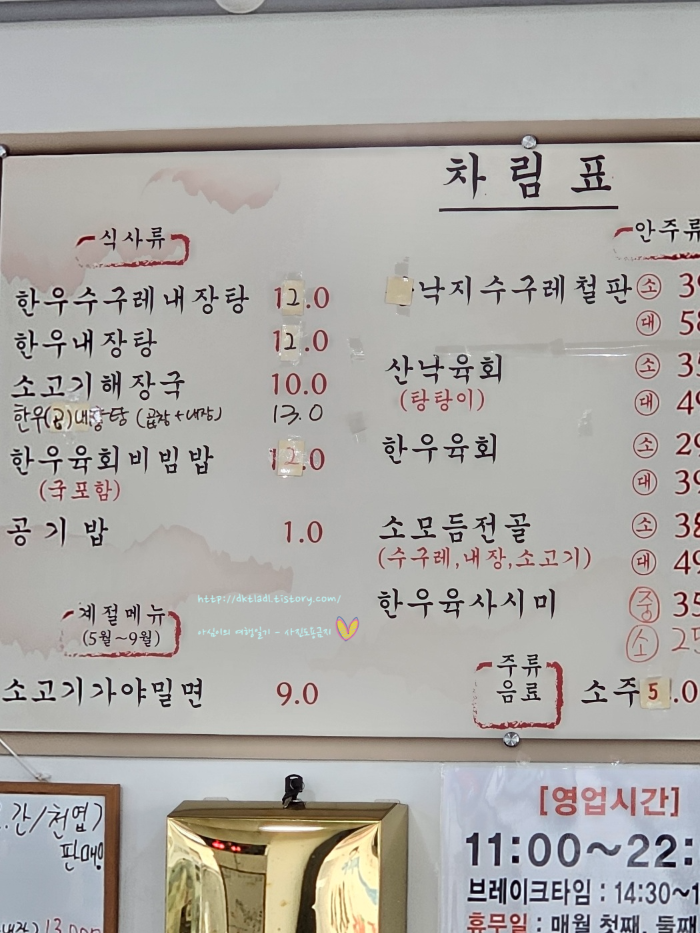 차림표
식사류
한우수구레내장탕 12.0
한우내장탕 12.0
소고기해장국 10.0
한우(곱)내장탕 (곱창+내장) 13.0
한우육회비빔밥 12.0
(국포함)
공기밥 1.0
계절메뉴
(5월~9월)
소고기가야밀면 9.0
안주류
낙지수구레철판 소 3
대 5
산낙육회 소 3
(탕탕이) 대 4
한우육회 소 29
대 39
소모듬전골 소 38
(수구레,내장,소고기) 대 49
한우육사시미 중 35
소 25
주류
음료
소주 5.0
http://dktladl.tistory.com/
아심이의 여행일기 - 사진도용금지
간/천엽
판매!
[영업시간]
11:00~22:
브레이크타임 : 14:30~1
휴무일 : 매월 첫째, 둘째